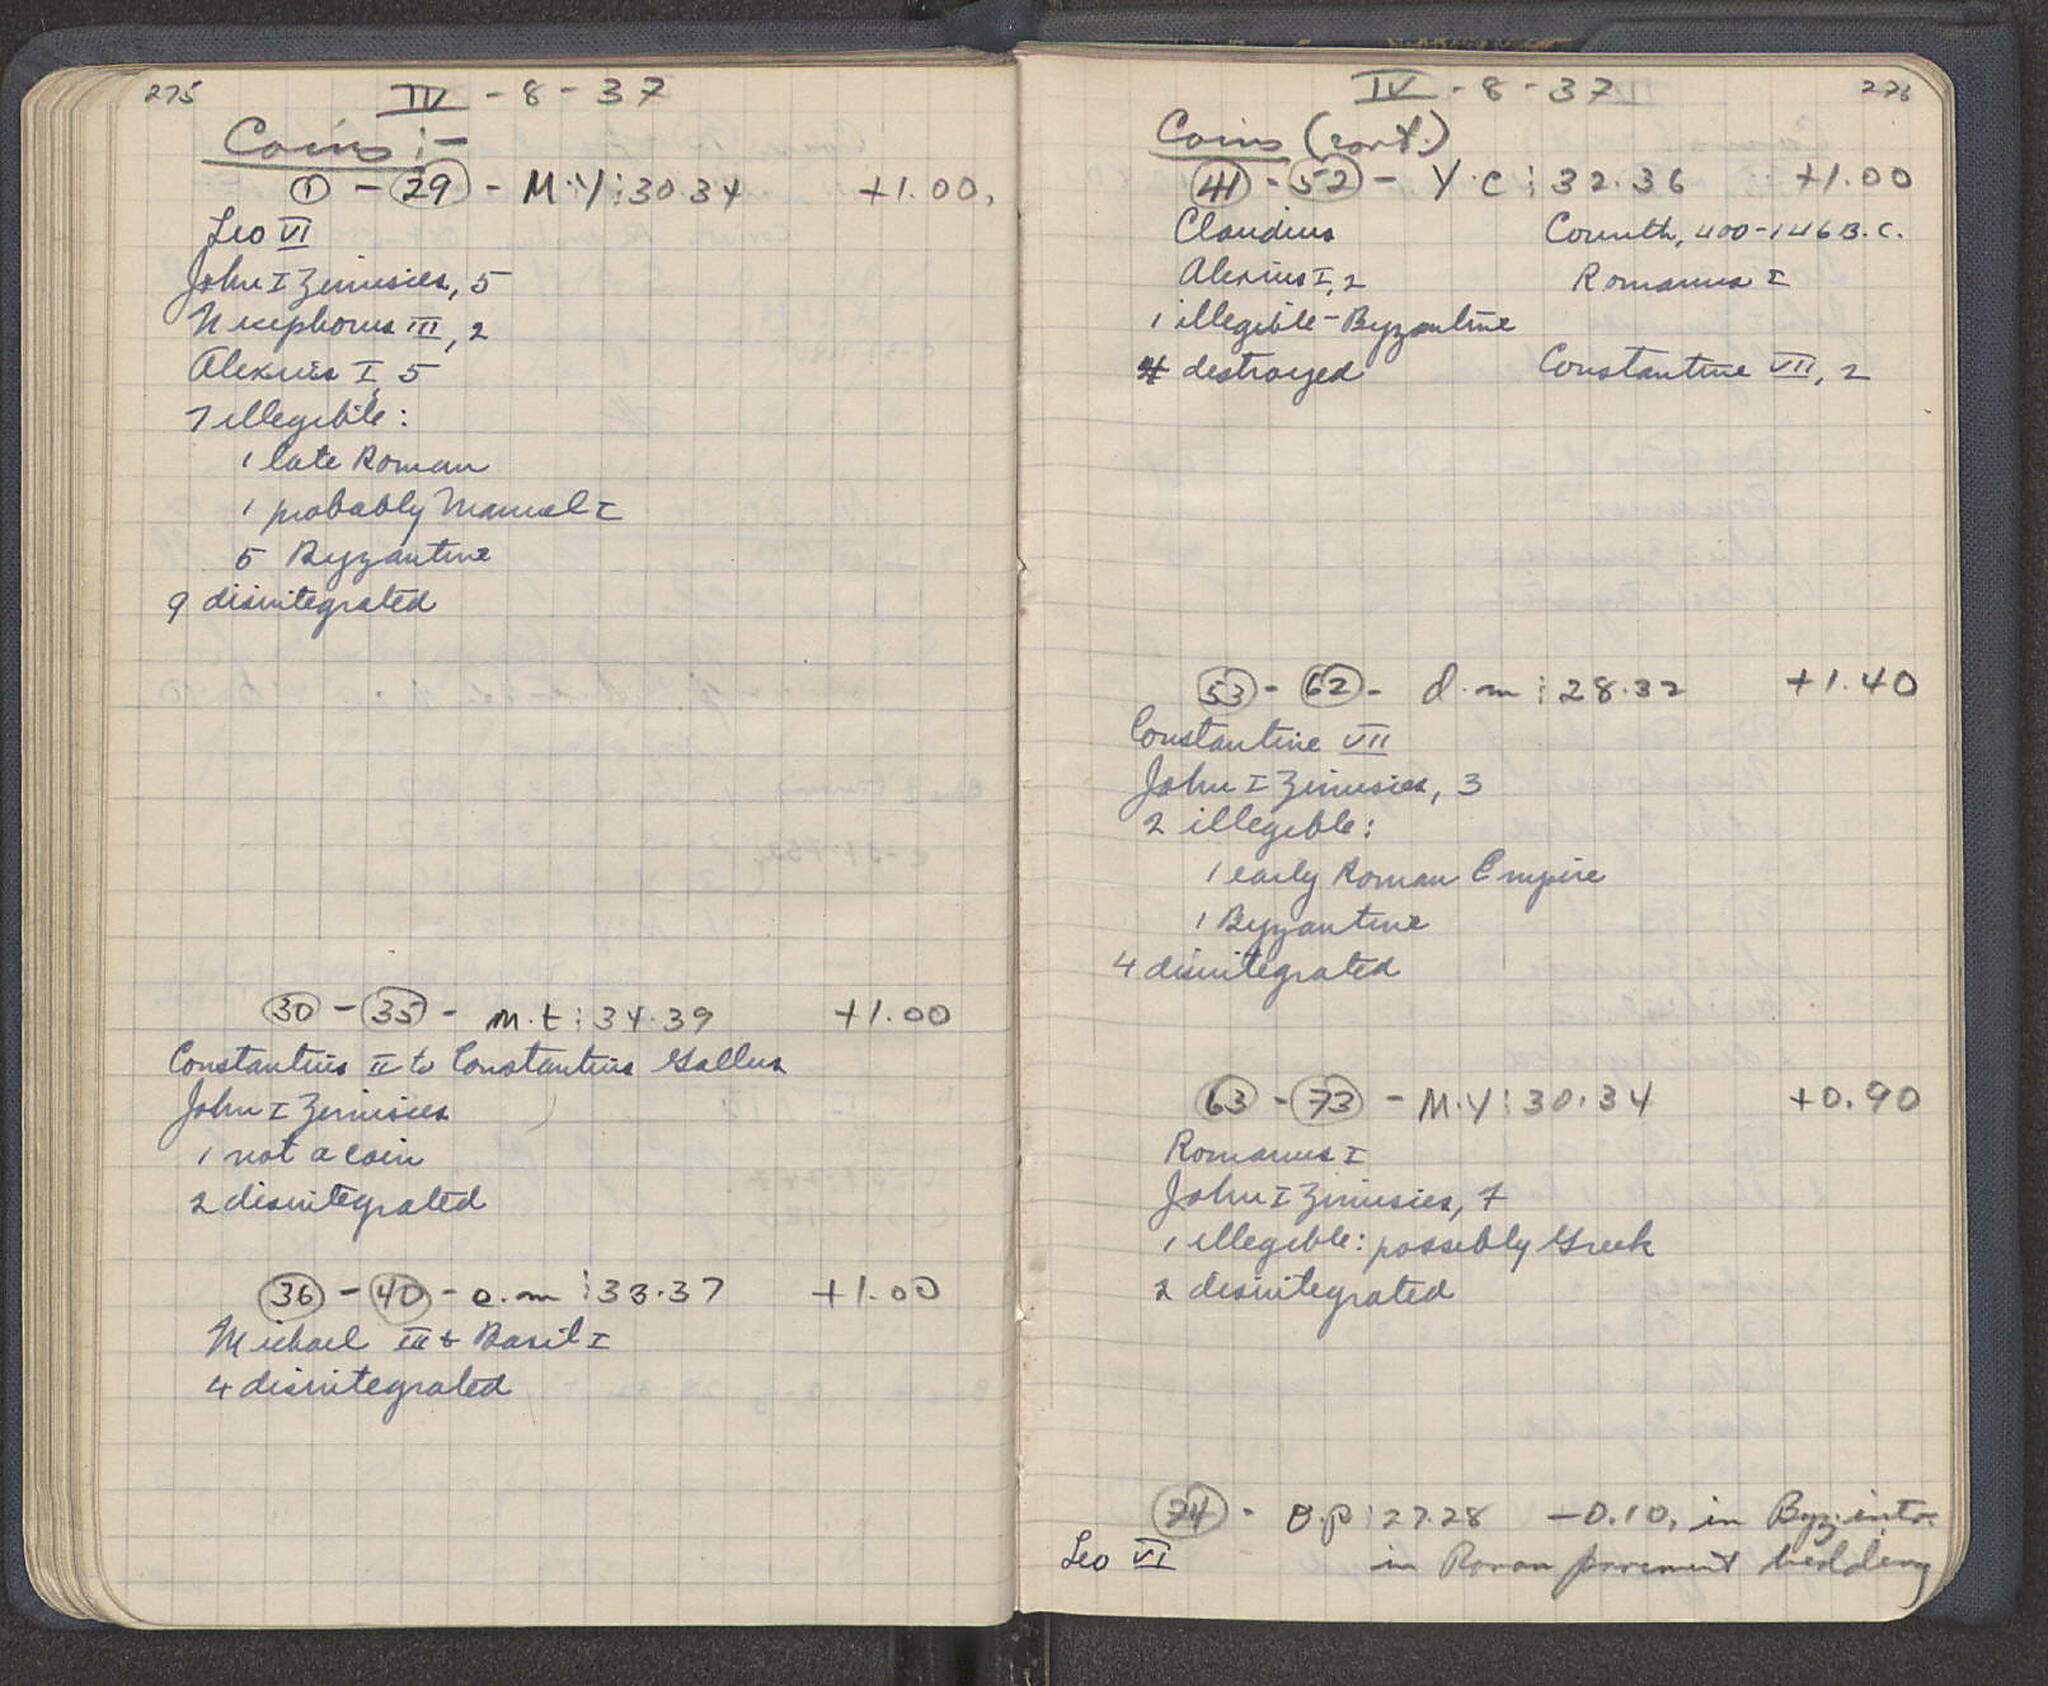 275
IV - 8 - 37
Coins :-
1 - 29 - M.Y : 30.34 +1.00.
Leo VI
John I Zimisies, 5
Nicephorus III, 2
Alexius I, 5
7 illegible:
1 late Roman
1 probably Manuel I
5 Byzantine
9 disintegrated
30 - 35 - m.t : 34.39 +1.00
Constantius II to Constantius Gallus
John I Zimisies
1 not a coin
2 disintegrated
36 - 40 - e.m : 33.37 +1.00
Michael III & Basil I
4 disintegrated
276
IV - 8 - 37
Coins (cont.)
41 - 52 - Y.C : 32.36 +1.00
Claudius Corinth, 400-146 B.C.
Alexius I, 2 Romanus I
1 illegible - Byzantine
4 destroyed Constantine VII, 2
53 - 62 - d.m : 28.32 +1.40
Constantine VII
John I Zimisies, 3
2 illegible:
1 early Roman Empire
1 Byzantine
4 disintegrated
63 - 73 - M.Y : 30.34 +0.90
Romanus I
John I Zimisies, 7
1 illegible: possibly Greek
2 disintegrated
74 - O.p : 27.28 -0.10, in Byz. intr.
Leo VI in Roman pavement bedding